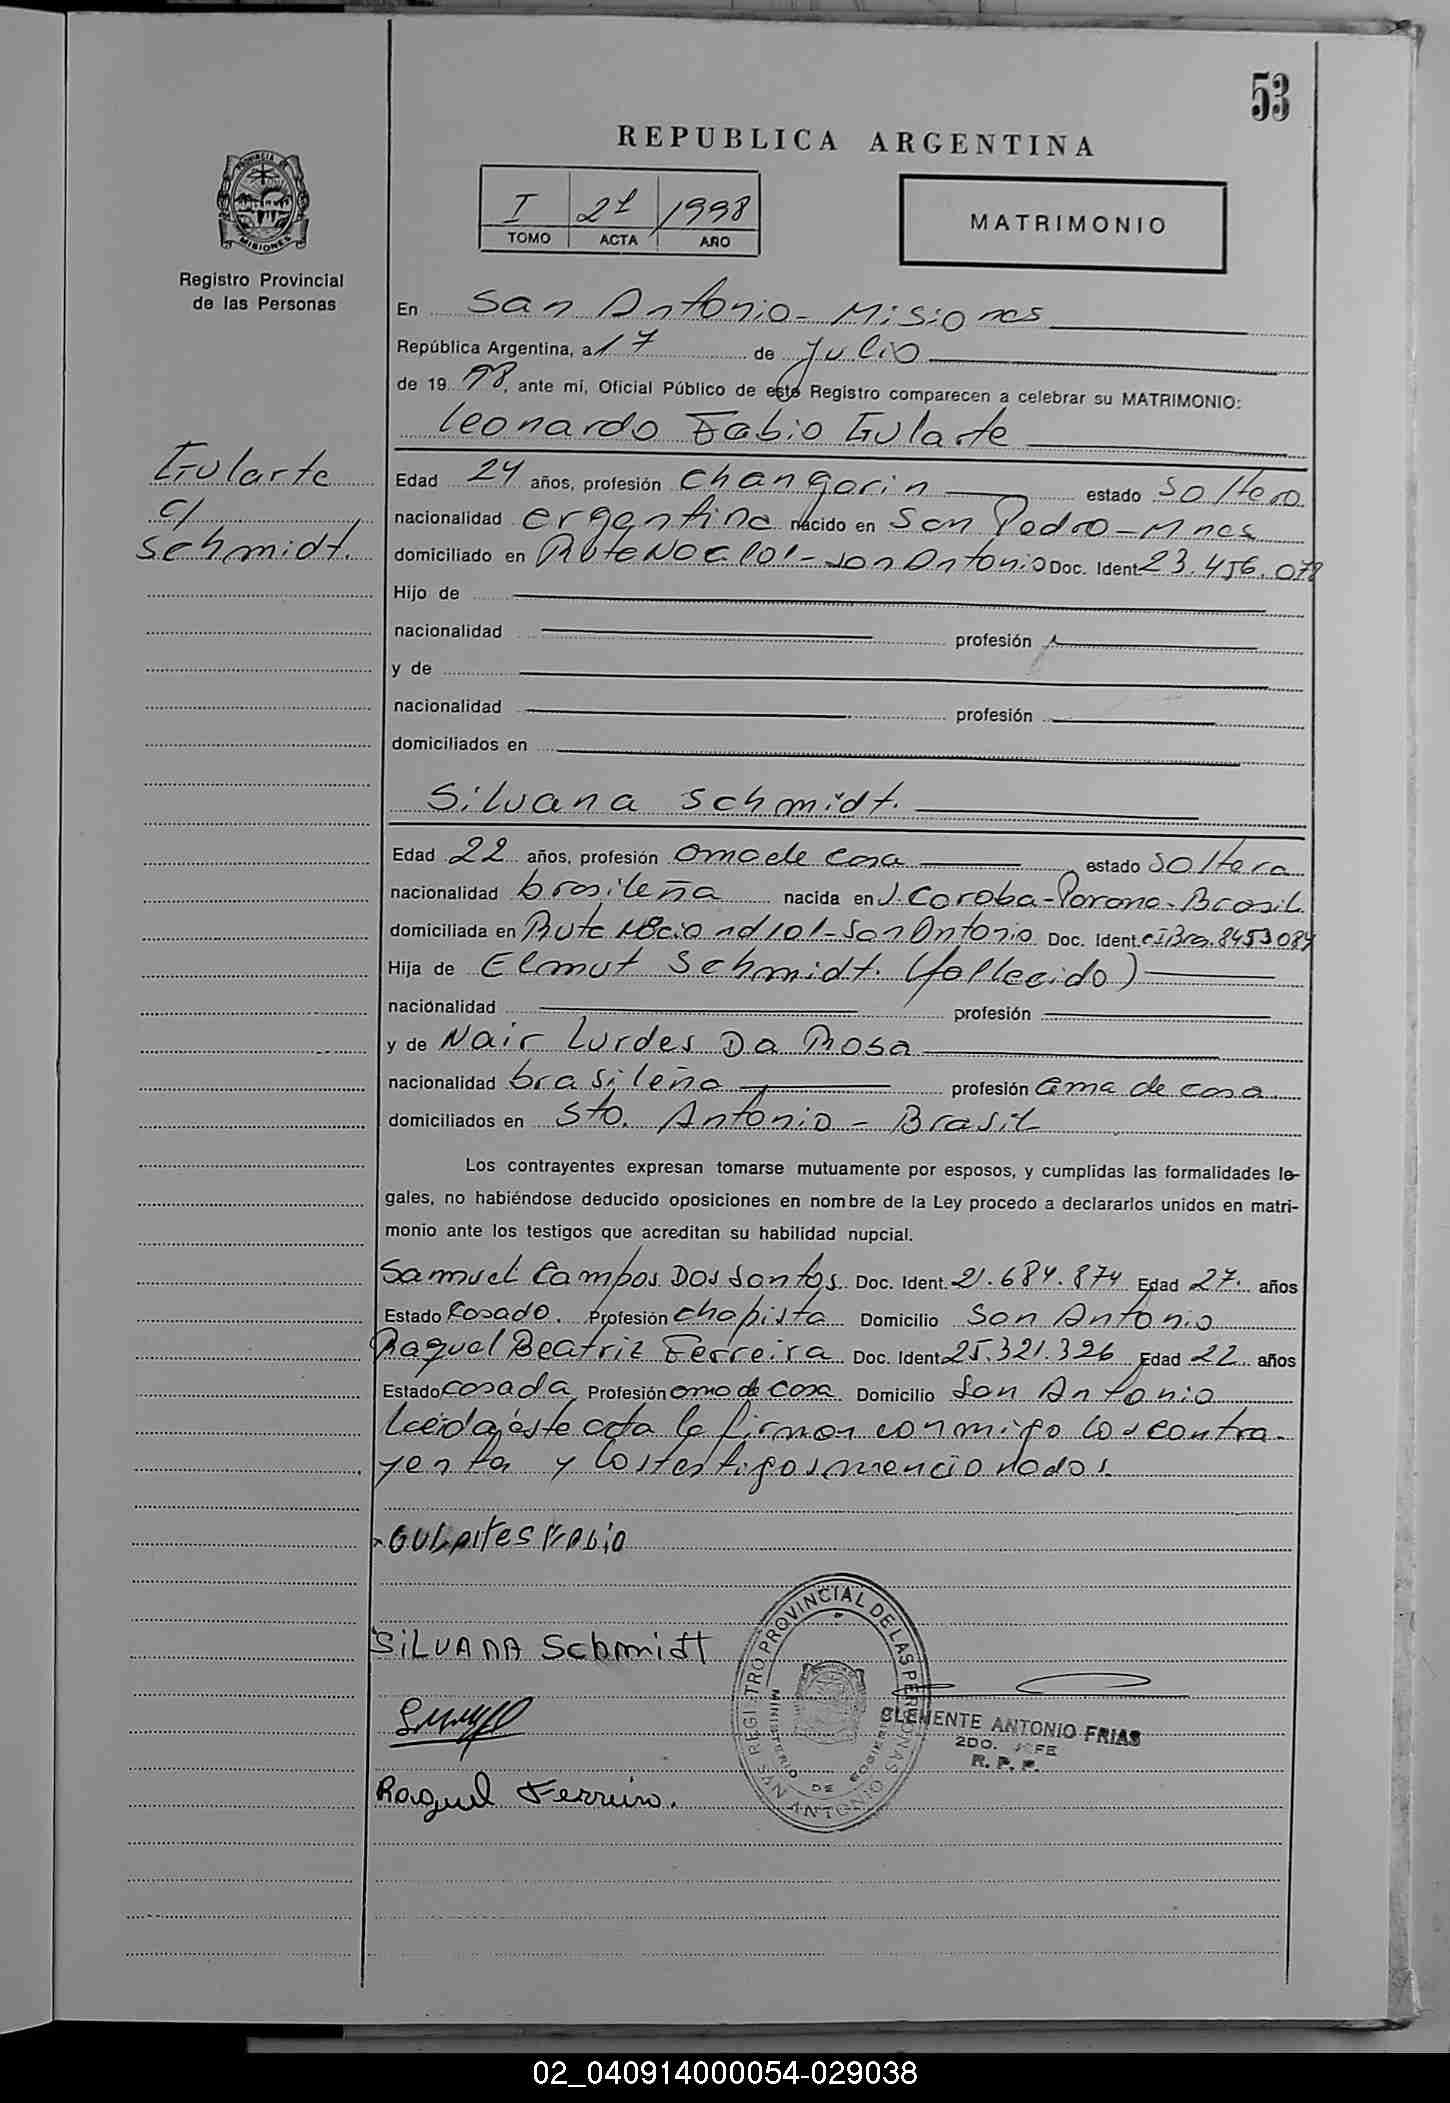 53
REPUBLICA ARGENTINA
PROVINCIA DE
MISIONES
Registro Provincial
de las Personas
I 21 1998
TOMO ACTA AÑO
MATRIMONIO
En San Antonio - Misiones
República Argentina, a 17 de Julio
de 19 98, ante mí, Oficial Público de este Registro comparecen a celebrar su MATRIMONIO:
Leonardo Fabio Gularte
Gularte
c/
Schmidt.
Edad 24 años, profesión changarin estado soltero
nacionalidad argentina nacido en San Pedro - Mnes
domiciliado en Ruta Nac. 101 - San Antonio Doc. Ident. 23.456.078
Hijo de
nacionalidad profesión
y de
nacionalidad profesión
domiciliados en
Silvana Schmidt.
Edad 22 años, profesión ama de casa estado soltera
nacionalidad brasileña nacida en Coroba - Parana - Brasil.
domiciliada en Ruta Nacional 101 - San Antonio Doc. Ident. CIBra. 8453084
Hija de Elmut Schmidt. (fallecido)
nacionalidad profesión
y de Nair Lurdes Da Rosa
nacionalidad brasileña profesión ama de casa
domiciliados en Sto. Antonio - Brasil
Los contrayentes expresan tomarse mutuamente por esposos, y cumplidas las formalidades le-
gales, no habiéndose deducido oposiciones en nombre de la Ley procedo a declararlos unidos en matri-
monio ante los testigos que acreditan su habilidad nupcial.
Samuel Campos Dos Santos Doc. Ident. 21.684.874 Edad 27. años
Estado Casado. Profesión chapista Domicilio San Antonio
Raquel Beatriz Ferreira Doc. Ident. 25.321.326 Edad 22 años
Estado casada Profesión ama de casa Domicilio San Antonio
Leída éste acta la firman conmigo los contra-
yentes y los testigos mencionados.
GULARTES FABIO
SiLVANA Schmidt
Raquel Ferreira.
REGISTRO PROVINCIAL DE LAS PERSONAS
MINISTERIO DE GOBIERNO
SAN ANTONIO
CLEMENTE ANTONIO FRIAS
2DO. JEFE
R. P. P.
02_040914000054-029038